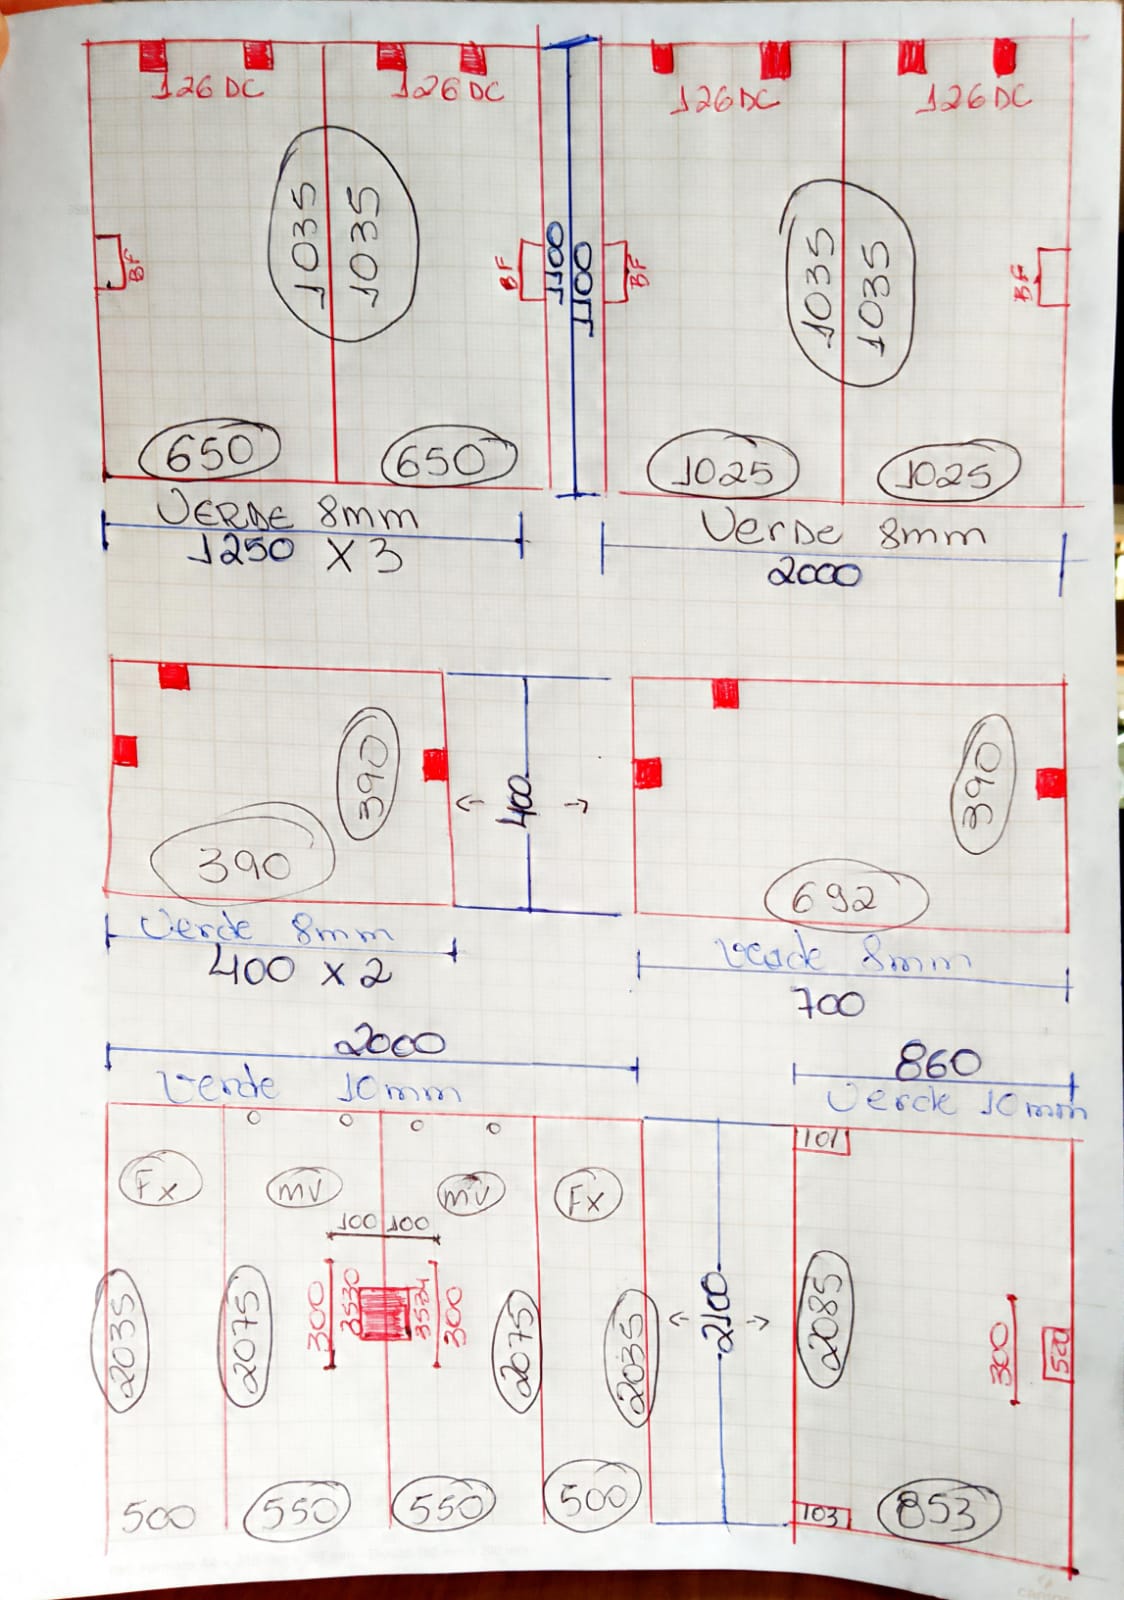 126 DC
126 DC
126 DC
126 DC
1035
1035
1035
1035
BF
BF
1100
1100
BF
BF
650
650
1025
1025
VERDE 8mm
1250 X 3
Verde 8mm
2000
390
390
400
390
692
Verde 8mm
400 x 2
Verde 8mm
700
2000
Verde 10mm
860
Verde 10mm
101
Fx
mv
mv
Fx
100 100
2035
2075
300
3530
3534
300
2075
2035
2100
2085
300
520
500
550
550
500
103
853